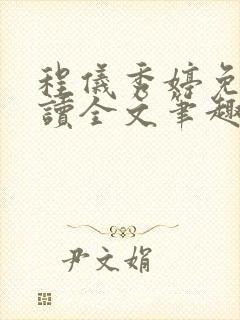 程儀秀婷免
讀全文筆趣
尹文娟